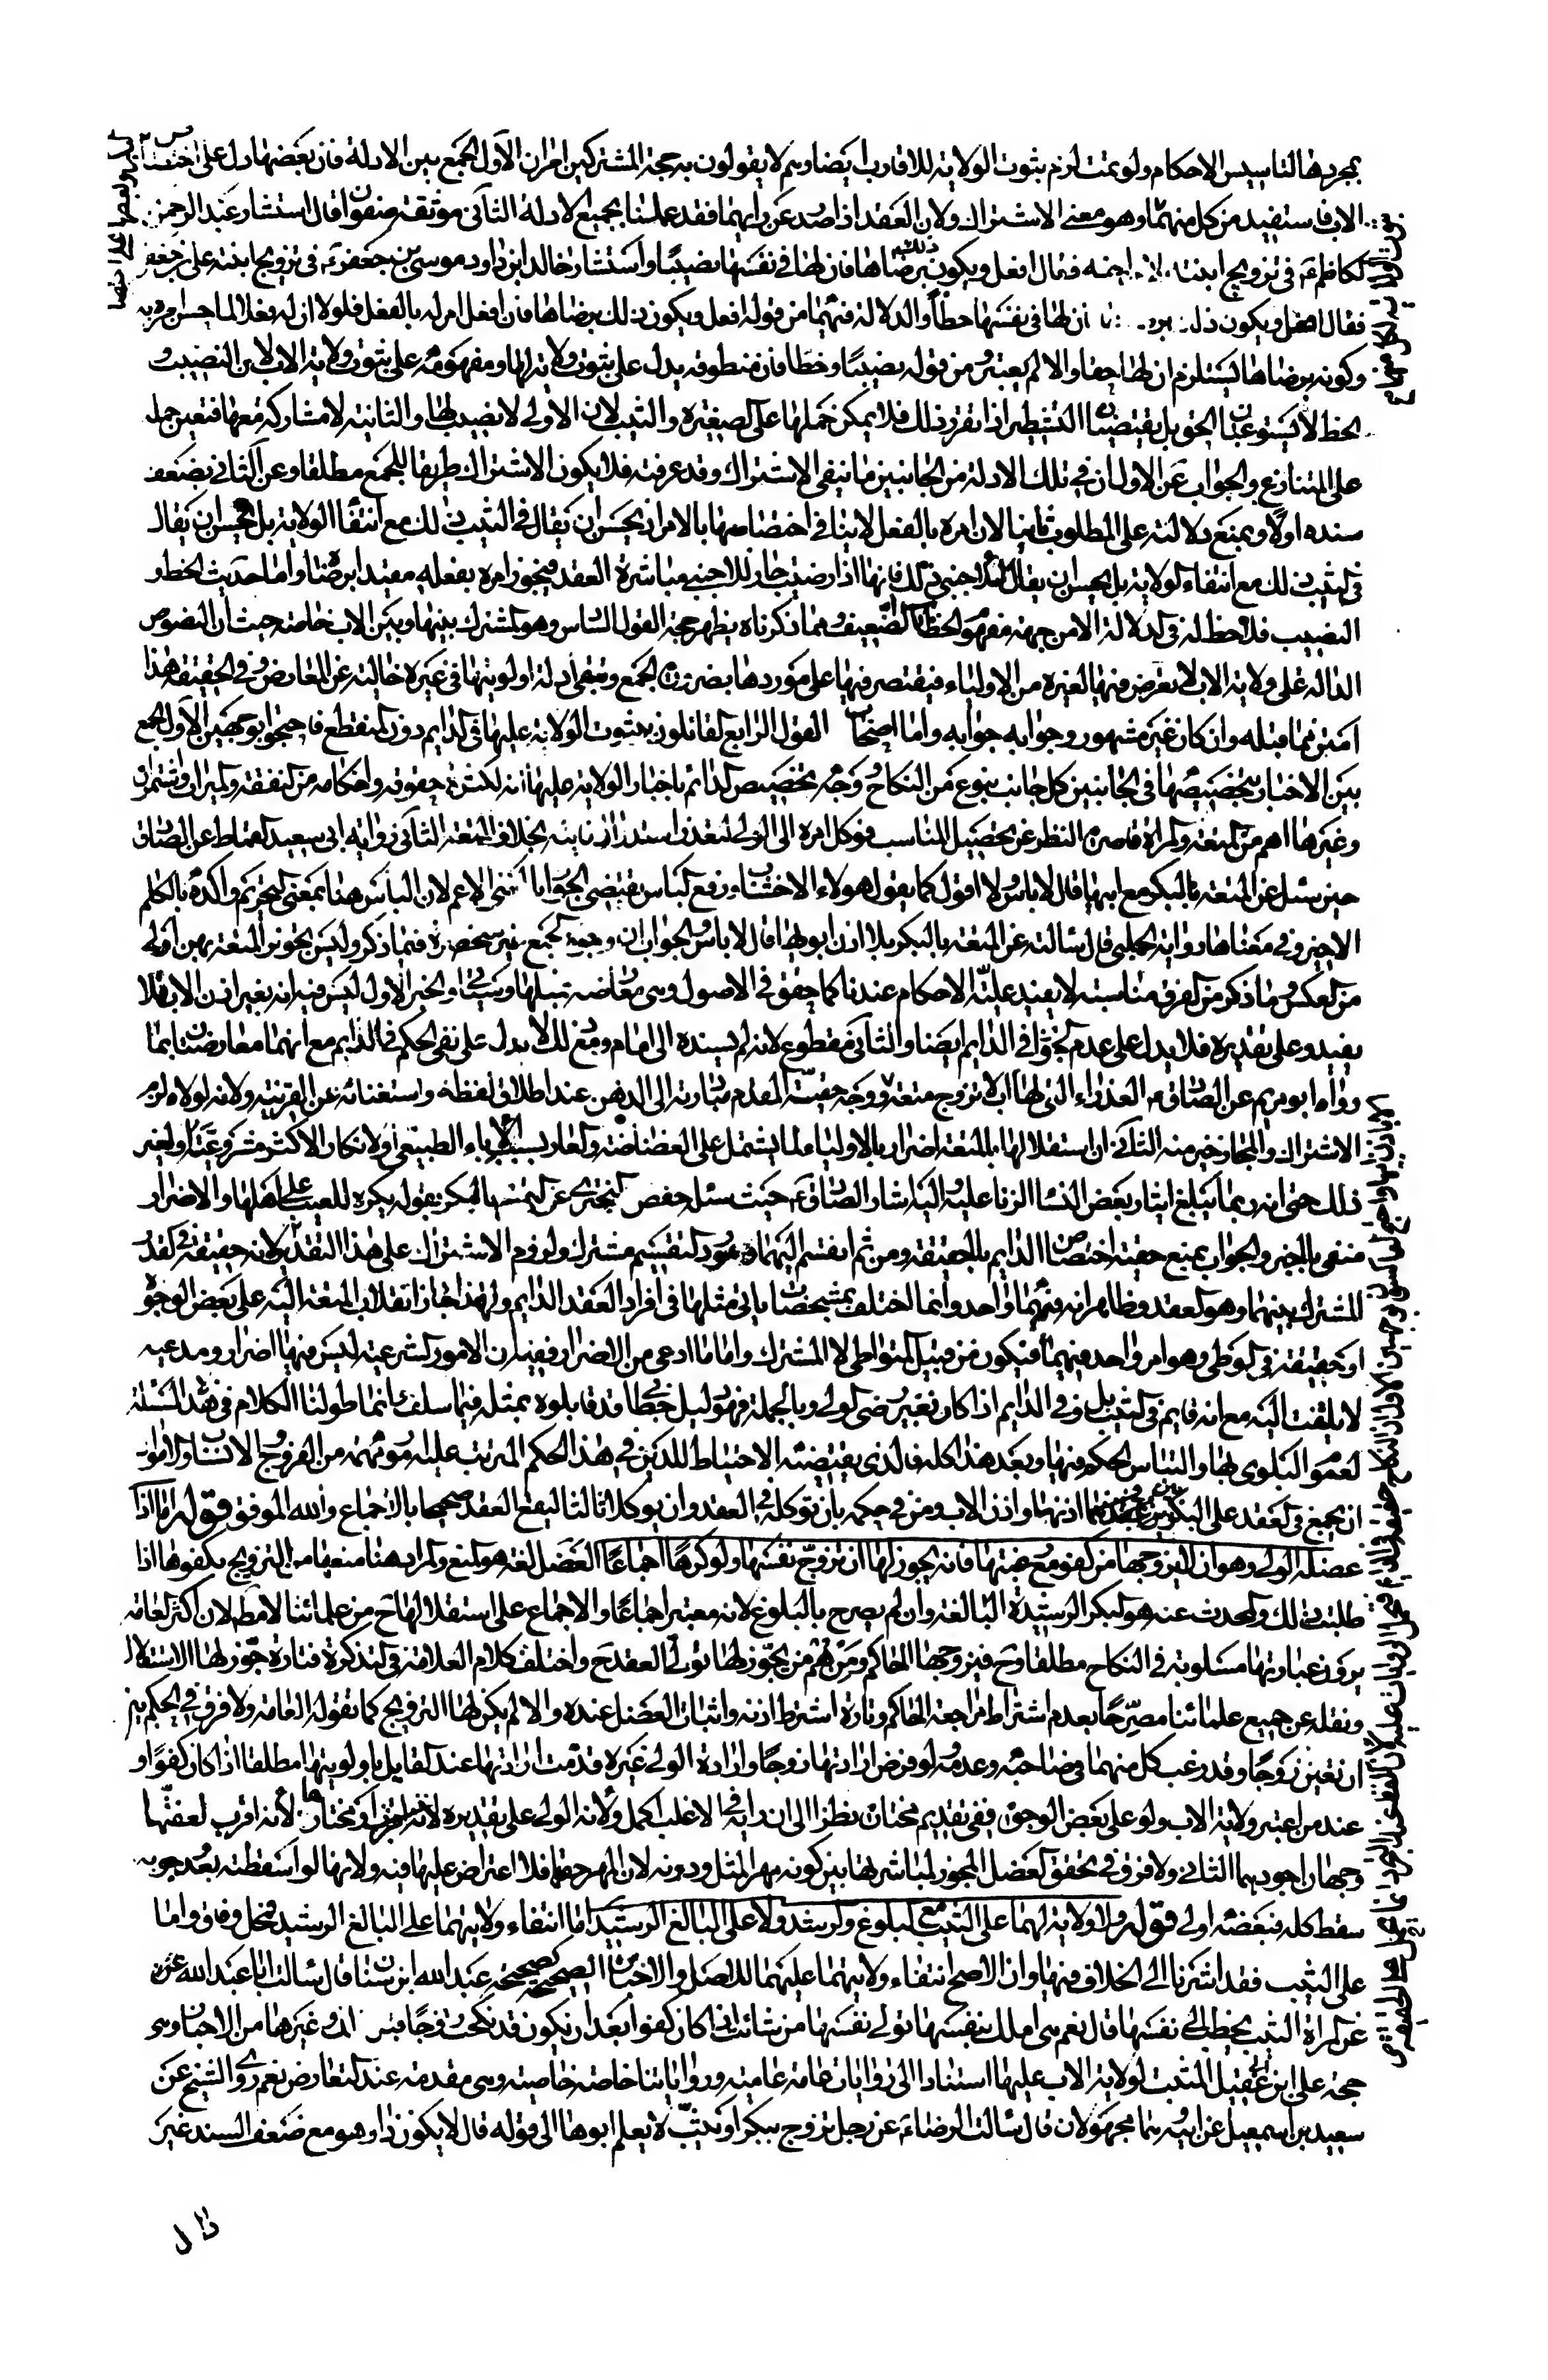 بمجردها لتاسيس الاحكام ولو تمت لزم ثبوت الولاية للاقارب ايضا وهم لا يقولون به حجة المشتركين امران الاول الجمع بين الادلة فان بعضها دل على اختصاص
الاب فاستفيد من كل منهما وهو معنى الاشتراك ولان العقد اذا صدر عن رايهما فقد عملنا بجميع الادلة الثاني موثقة صفوان قال استشار عبد الرحمن
الكاظم ع في تزويج ابنته لابن اخيه فقال افعل ويكون ذلك برضاها فان لها في نفسها نصيبا واستشار خالد ابن داود موسى بن جعفر ع في تزويج ابنته على بن جعفر
فقال افعل ويكون ذلك برضاها فان لها في نفسها حظا والدلالة فيهما من قوله افعل ويكون ذلك برضاها فان افعل امر له بالفعل فلولا ان له فعلا لما حسن امره به
وكونه برضاها يستلزم ان لها حقا والا لم يعتبر ومن قوله نصيبا وحظا فان منطوقه يدل على ثبوت ولاية لها ومفهومه على ثبوت ولاية الاب لان النصيب و
الحظ لا يستوعبان الحق بل يقتضيان التشطير اذا تقرر ذلك فلا يمكن حملها على الصغيرة والثيب لان الاولى لا نصيب لها والثانية لا مشاركة معها فتعين حمله
على المتنازع والجواب عن الاول ان في تلك الادلة من الجانبين ما ينفى الاشتراك وقد عرفته فلا يكون الاشتراك طريقا للجمع مطلقا وعن الثاني بضعف
سنده اولا وبمنع دلالته على المطلوب ثانيا لان امره بالفعل لا ينافي اختصاصها بالامر اذ يحسن ان يقال في الثيب ذلك مع انتفاء الولاية بل يحسن ان يقال
في الثيب ذلك مع انتفاء الولاية بل يحسن ان يقال للاجنبي ذلك فانها اذا رضيت جاز للاجنبي مباشرة العقد فيجوز امره بفعله مقيدا برضاها واما حديث الحظ و
النصيب فلا حظ له في الدلالة الا من جهة مفهوم الخطاب الضعيف ومما ذكرناه يظهر حجة القول السادس وهو المشترك بينها وبين الاب خاصة حيث ان النصوص
الدالة على ولاية الاب لا تعرض فيها لغيره من الاولياء فيقتصر فيها على موردها بضرورة الجمع وتبقى ادلة اولويتها في غيره خالية عن المعارض وفي الحقيقة هذا
امتن مما قبله وان كان غير مشهور وجوابه جوابه واما اصحاب القول الرابع القائلون بثبوت الولاية عليها في الدايم دون المنقطع فاحتجوا بوجهين الاول الجمع
بين الاخبار بتخصيصها في الجانبين كل جانب بنوع من النكاح ووجه تخصيص الدائم باخبار الولاية عليها انه لكثرة حقوقه واحكامه من النفقة والميراث واستمراره
وغيرها اهم من المتعة والمراة قاصرة النظر عن تحصيل المناسب فوكل امره الى الولي بخلاف المتعة الثاني رواية ابي سعيد القماط عن الصادق
حين سئل عن المتعة بالبكر مع ابيها قال لا باس ولا اقول كما يقول هولاء الاقشاب ورفع الباس يقتضي الجواز بالمعنى الاعم لان الباس هنا بمعنى التحريم واكده بالكلام
الاخير وفي معناها رواية الحلبي قال سالته عن المتعة بالبكر بلا اذن ابويها قال لا باس والجواب ان وجوه الجمع غير منحصرة فيما ذكر وليس تجويز المتعة بهن اولى
من العكس وما ذكر من الفرق مناسبته لا يفيد علية الاحكام عندنا كما حقق في الاصول وهي معارضة بمثلها وسياتي والخبر الاول ليس فيه انه بغير اذن الاب فلا
يفيد وعلى تقديره فلا يدل على عدم الجواز في الدايم ايضا والثاني مقطوع لانه لم يسنده الى امام ومع ذلك لا يدل على نفي الحكم في الدايم مع انهما معارضتان بما
رواه ابو مريم عن الصادق ع العذراء التي لها اب لا تزوج متعة ووجه حقيقة المقدم مبادرته الى الذهن عند اطلاق لفظه واستغنائه عن القرينة ولانه لولاه لزم
الاشتراك والمجاز خير منه الثاني ان استقلالها بالمتعة اضرار بالاولياء لما يشتمل على الغضاضة والعار بسبب الاباء الطبيعي ولانكار الاكثر مشروعيتها ولغير
ذلك حتى انه ربما يبلغ ايثار بعض النساء الزنا عليه واليه اشار الصادق ع حيث سئل حفص البختري عن التمتع بالبكر بقوله يكره للعيب على اهلها والاضرار
منفي بالخبر والجواب بمنع حقيته اختصاص الدايم بالحقيقة ومن ثم انقسم اليهما ومورد التقسيم مشترك ولزوم الاشتراك على هذا التقدير لانه حقيقة في القدر
المشترك بينهما وهو العقد وظاهر انه فيهما واحد وانما اختلف بمشخصات ياتي مثلها في افراد العقد الدايم ولهذا جاز انقلاب المتعة اليه على بعض الوجوه
او حقيقة في الوطى وهو امر واحد فيهما فيكون من قبيل المتواطي لا المشترك واما ما ادعى من الاضرار ففيه ان الامور الشرعية ليس فيها اضرار ومدعيه
لا يلتفت اليه مع انه قايم في الثيب بل وفي الدايم اذا كان بغير رضى الولي وبالجملة فهو دليل خطابي قد قابلوه بمثله فيما سلف وانما طولنا الكلام في هذه المسئلة
لعموم البلوى بها والتباس الحكم فيها وبعد هذا كله فالذي يقتضيه الاحتياط للدين في هذا الحكم المترتب عليه امور مهمة من الفروج الانساب والاموال
ان يجمع في العقد على البكر بين اذنها واذن الاب ومن في حكمه بان توكله في العقد وان يوكلا ثالثا ليقع العقد صحيحا بالاجماع والله الموفق قوله اما اذا
عضلها الولي وهو ان لا يزوجها من كفو مع رغبتها فانه يجوز لها ان تزوج نفسها ولو كرها اجماعا العضل لغة هو المنع والمراد هنا منعها من التزويج بكفوها اذا
طلبت ذلك والمحدث عنه هو البكر الرشيدة البالغة وان لم يصرح بالبلوغ لانه معتبر اجماعا والاجماع على استقلالها ح من علمائنا لا مط لان اكثر العامة
يرون عبارتها مسلوبة في النكاح مطلقا وح فيزوجها الحاكم ومنهم من يجوز لها تولي العقد ح واختلف كلام العلامة في التذكرة فتارة جوز لها الاستقلال
ونقله عن جميع علمائنا مصرحا بعدم اشتراط مراجعة الحاكم وتارة اشترط اذنه واثبات العضل عنده والا لم يكن لها التزويج كما تقوله العامة ولا فرق في الحكم بين
ان تعين زوجا وقد رغب كل منهما في صاحبه وعدمه ولو فرض ارادتها زوجا وارادة الولي غيره قدمت ارادتها عند القايل باولويتها مطلقا اذا كان كفوا و
عند من اعتبر ولاية الاب ولو على بعض الوجوه ففي تقديم مختاره نظرا الى ان رايه في الاغلب اكمل ولانه الولي على تقديره او مختارها لانه اقرب لعفتها
وجهان اجودهما الثاني ولا فرق في تحقق العضل المجوز لمباشرتها بين كونه مهر المثل ودونه لان المهر حقها فلا اعتراض عليها فيه ولانها لو اسقطته بعد وجوبه
سقط كله فبعضه اولى قوله ولا ولاية لهما على الثيب مع البلوغ والرشد ولا على البالغ الرشيد اما انتفاء ولايتهما على البالغ الرشيد فمحل وفاق واما
على الثيب فقد اشرنا الى الخلاف فيها وان الاصح انتفاء ولايتهما عليهما للاصل والاخبار الصحيحة كصحيحة عبد الله ابن سنان قال سالت ابا عبد الله ع
عن المراة الثيب تخطب الى نفسها قال نعم هي املك بنفسها تولي نفسها من شائت اذا كان كفوا بعد ان يكون قد نكحت زوجا قبل ذلك وغيرها من الاخبار وهي
حجة على ابن ابي عقيل المثبت لولاية الاب عليها استنادا الى روايات عامة عامية ورواياتنا خاصة خاصية وهي مقدمة عند التعارض نعم روى الشيخ عن
سعيد بن اسمعيل عن ابيه وهما مجهولان قال سالت الرضا ع عن رجل تزوج ببكر او ثيب لا يعلم ابوها الى قوله قال لا يكون ذا وهو مع ضعف السند غير